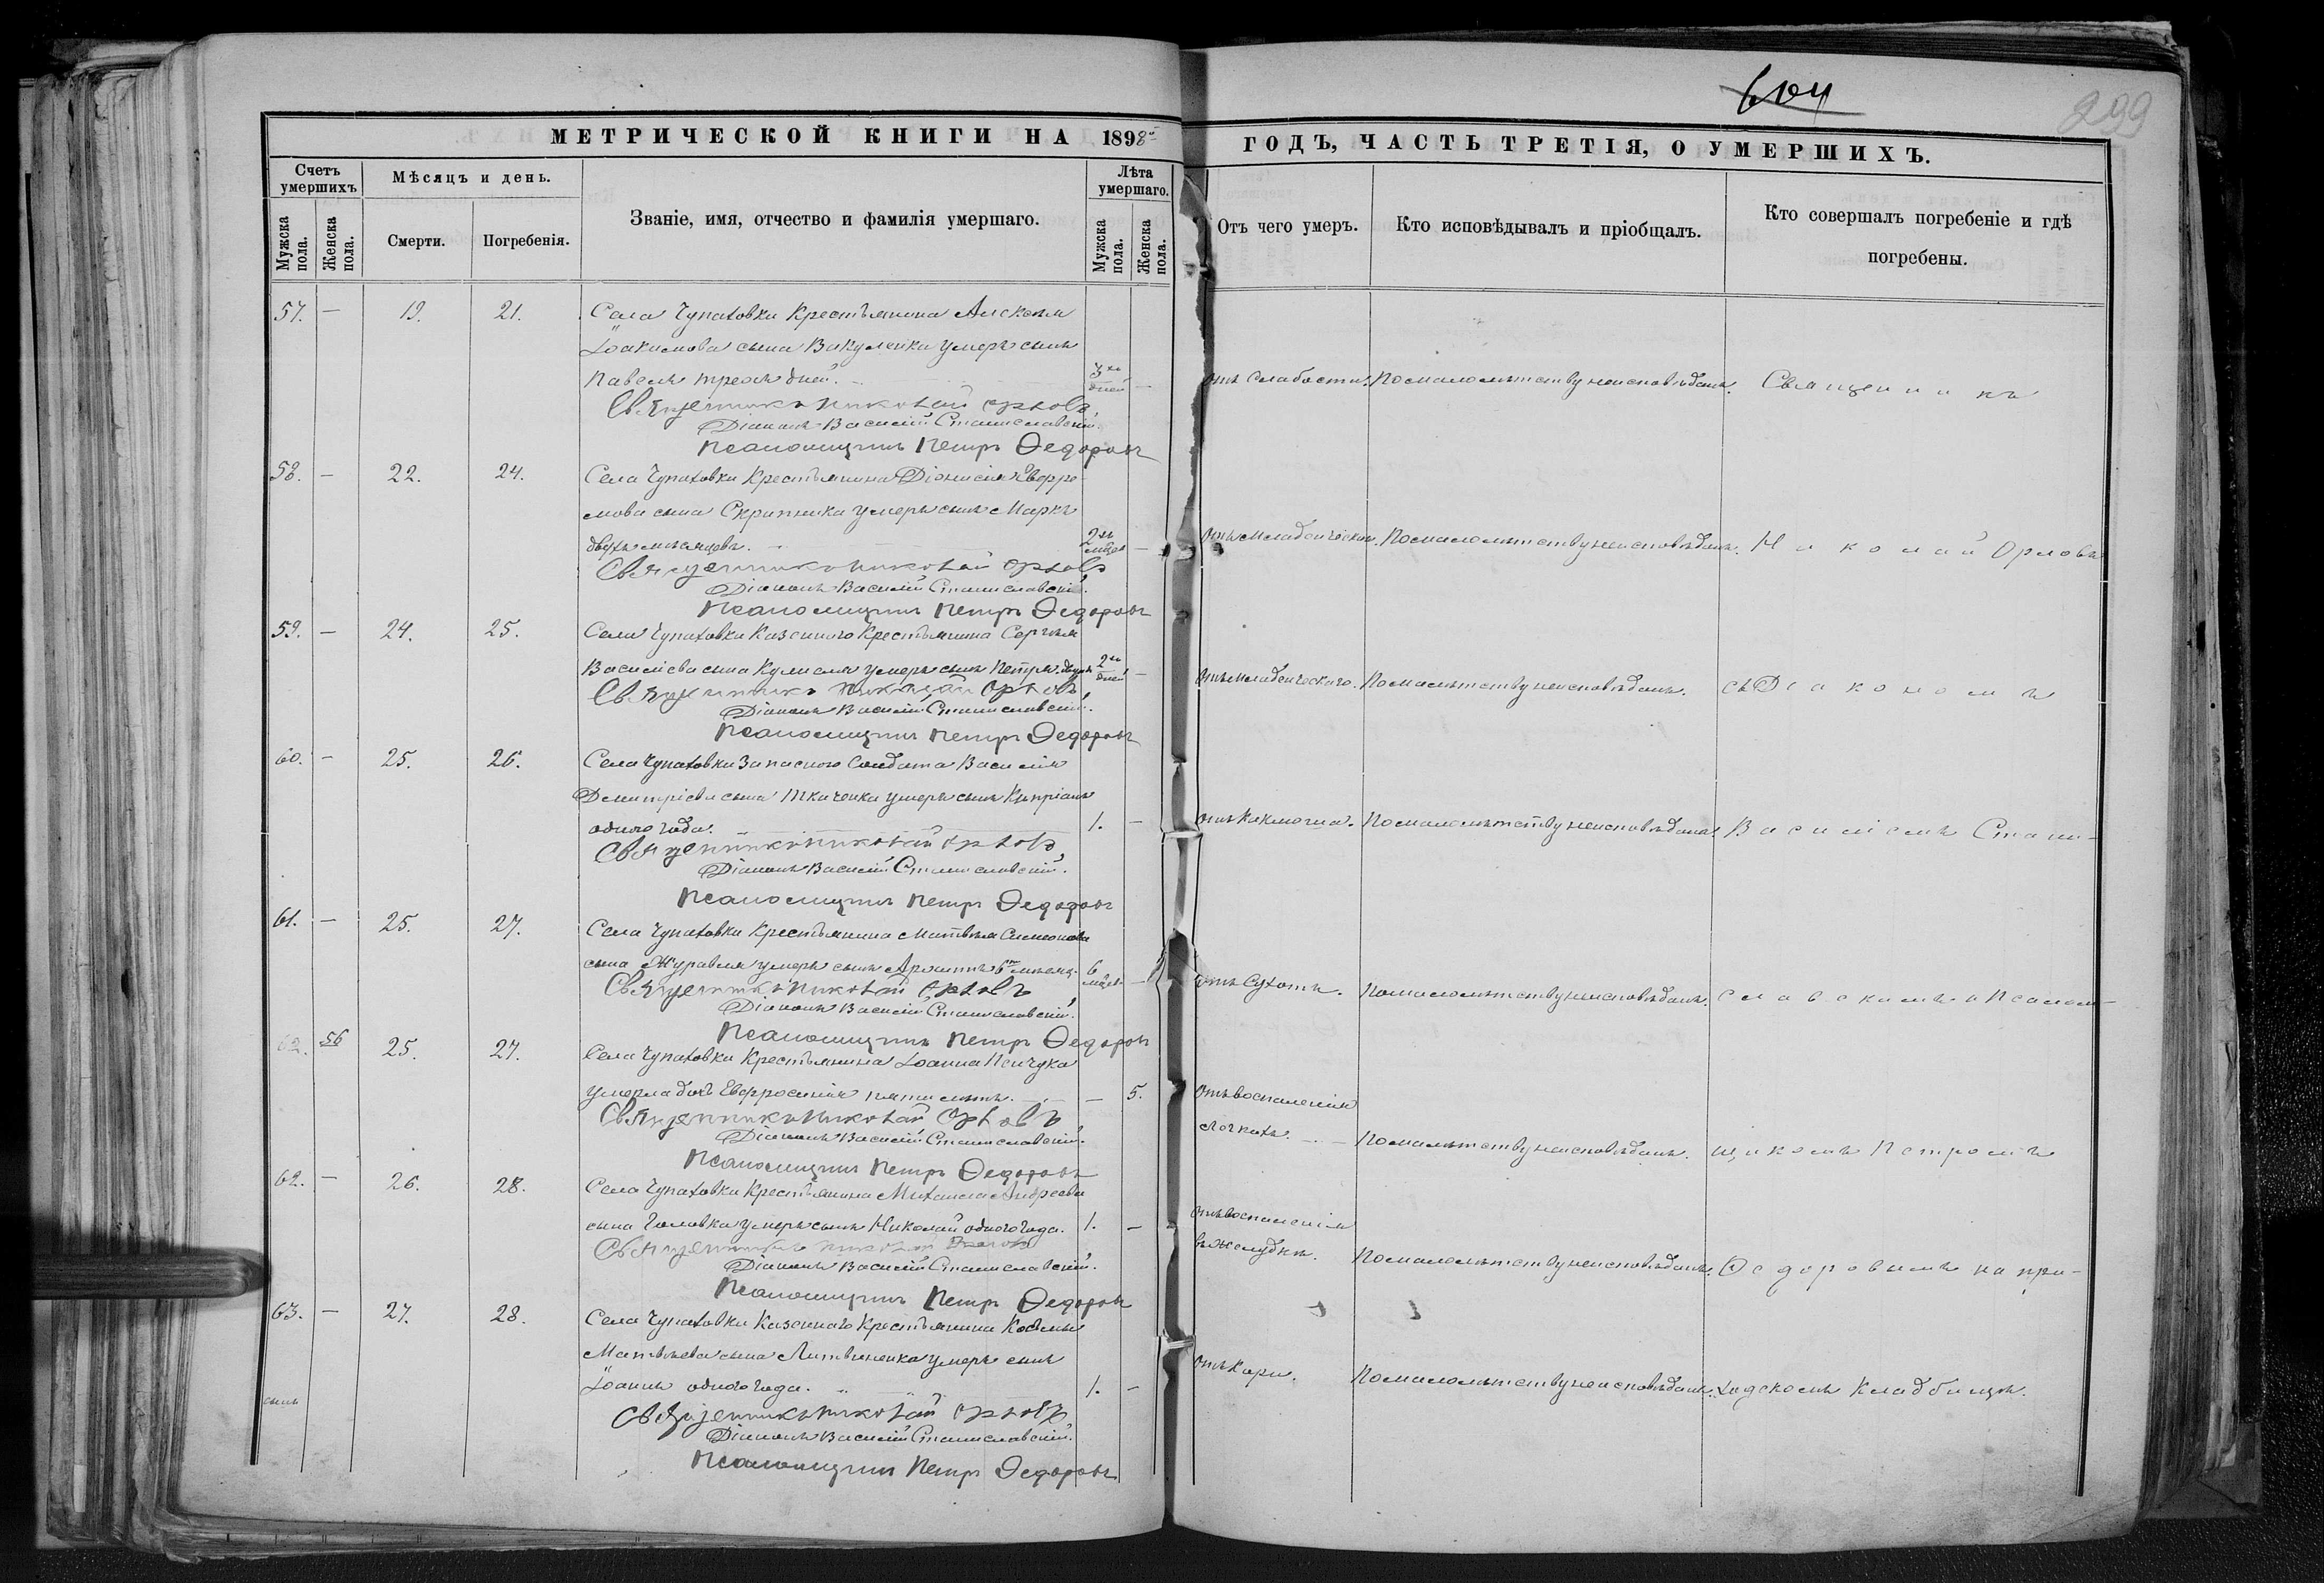 604
299
МЕТРИЧЕСКОЙ КНИГИ НА 1898
ГОДЪ, ЧАСТЬ ТРЕТІЯ, О УМЕРШИХЪ.
Счетъ умершихъ
Мѣсяцъ и день.
Званіе, имя, отчество и фамилія умершаго.
Лѣта умершаго.
Мужска пола.
Женска пола.
Смерти.
Погребенія.
Мужска пола.
Женска пола.
Отъ чего умеръ.
Кто исповѣдывалъ и пріобщалъ.
Кто совершалъ погребеніе и гдѣ
погребены.
57. — 19. 21. Села Чупаховки Крестьянина Алексѣя
Іоакимова сына Викуленка умеръ сынъ
Павелъ трехъ дней. 3хъ дней — отъ слабости. По малолѣтству неисповѣданъ. Священникъ
Священникъ Николай Орловъ
Діаконъ Василій Станиславскій.
Псаломщикъ Петръ Ѳедоровъ
58. — 22. 24. Села Чупаховки Крестьянина Діонисія Евфре-
мова сына Скрипника умеръ сынъ Маркъ
двухъ мѣсяцевъ. 2хъ мѣсяц — отъ младенческой. По малолѣтству неисповѣданъ. Николай Орловъ
Священникъ Николай Орловъ
Діаконъ Василій Станиславскій.
Псаломщикъ Петръ Ѳедоровъ
59. — 24. 25. Села Чупаховки Казеннаго Крестьянина Сергѣя
Василіева сына Кулиша умеръ сынъ Петръ двухъ 2хъ дней — отъ младенческаго. По малѣтству неисповѣданъ. съ Діакономъ
Священникъ Николай Орловъ
Діаконъ Василій Станиславскій.
Псаломщикъ Петръ Ѳедоровъ
60. — 25. 26. Села Чупаховки Запаснаго Солдата Василія
Димитріева сына Ткаченка умеръ сынъ Кипріанъ
одного года. 1. — отъ Коклюша. По малолѣтству неисповѣданъ. Василіемъ Стани-
Священникъ Николай Орловъ
Діаконъ Василій Станиславскій.
Псаломщикъ Петръ Ѳедоровъ
61. — 25. 27. Села Чупаховки Крестьянина Матвѣя Симеонова
сына Журавля умеръ сынъ 6 мѣсяц. 6 мѣсяц — отъ Сухотъ. По малолѣтству неисповѣданъ. славскимъ и Псалом-
Священникъ Николай Орловъ
Діаконъ Василій Станиславскій.
Псаломщикъ Петръ Ѳедоровъ
62. 56 25. 27. Села Чупаховки Крестьянина Іоанна Пенчука
умерла дочь Евфросинія пяти лѣтъ. — 5. отъ воспаленія
легкихъ. — По малѣтству неисповѣдана. щикомъ Петромъ
Священникъ Николай Орловъ
Діаконъ Василій Станиславскій.
Псаломщикъ Петръ Ѳедоровъ
62. — 26. 28. Села Чупаховки Крестьянина Михаила Андреева
сына Головка умеръ сынъ Николай одного года. 1. — отъ воспаленія
въ желудкѣ. По малолѣтству неисповѣданъ. Ѳедоровымъ на при-
Священникъ Николай Орловъ
Діаконъ Василій Станиславскій.
Псаломщикъ Петръ Ѳедоровъ
63. — 27. 28. Села Чупаховки Казеннаго Крестьянина Космы
Матвѣева сына Литвиненка умеръ сынъ
Іоаннъ одного года. 1. — отъ Кори. По малолѣтству неисповѣданъ. ходскомъ Кладбищѣ.
сынъ
Священникъ Николай Орловъ
Діаконъ Василій Станиславскій.
Псаломщикъ Петръ Ѳедоровъ